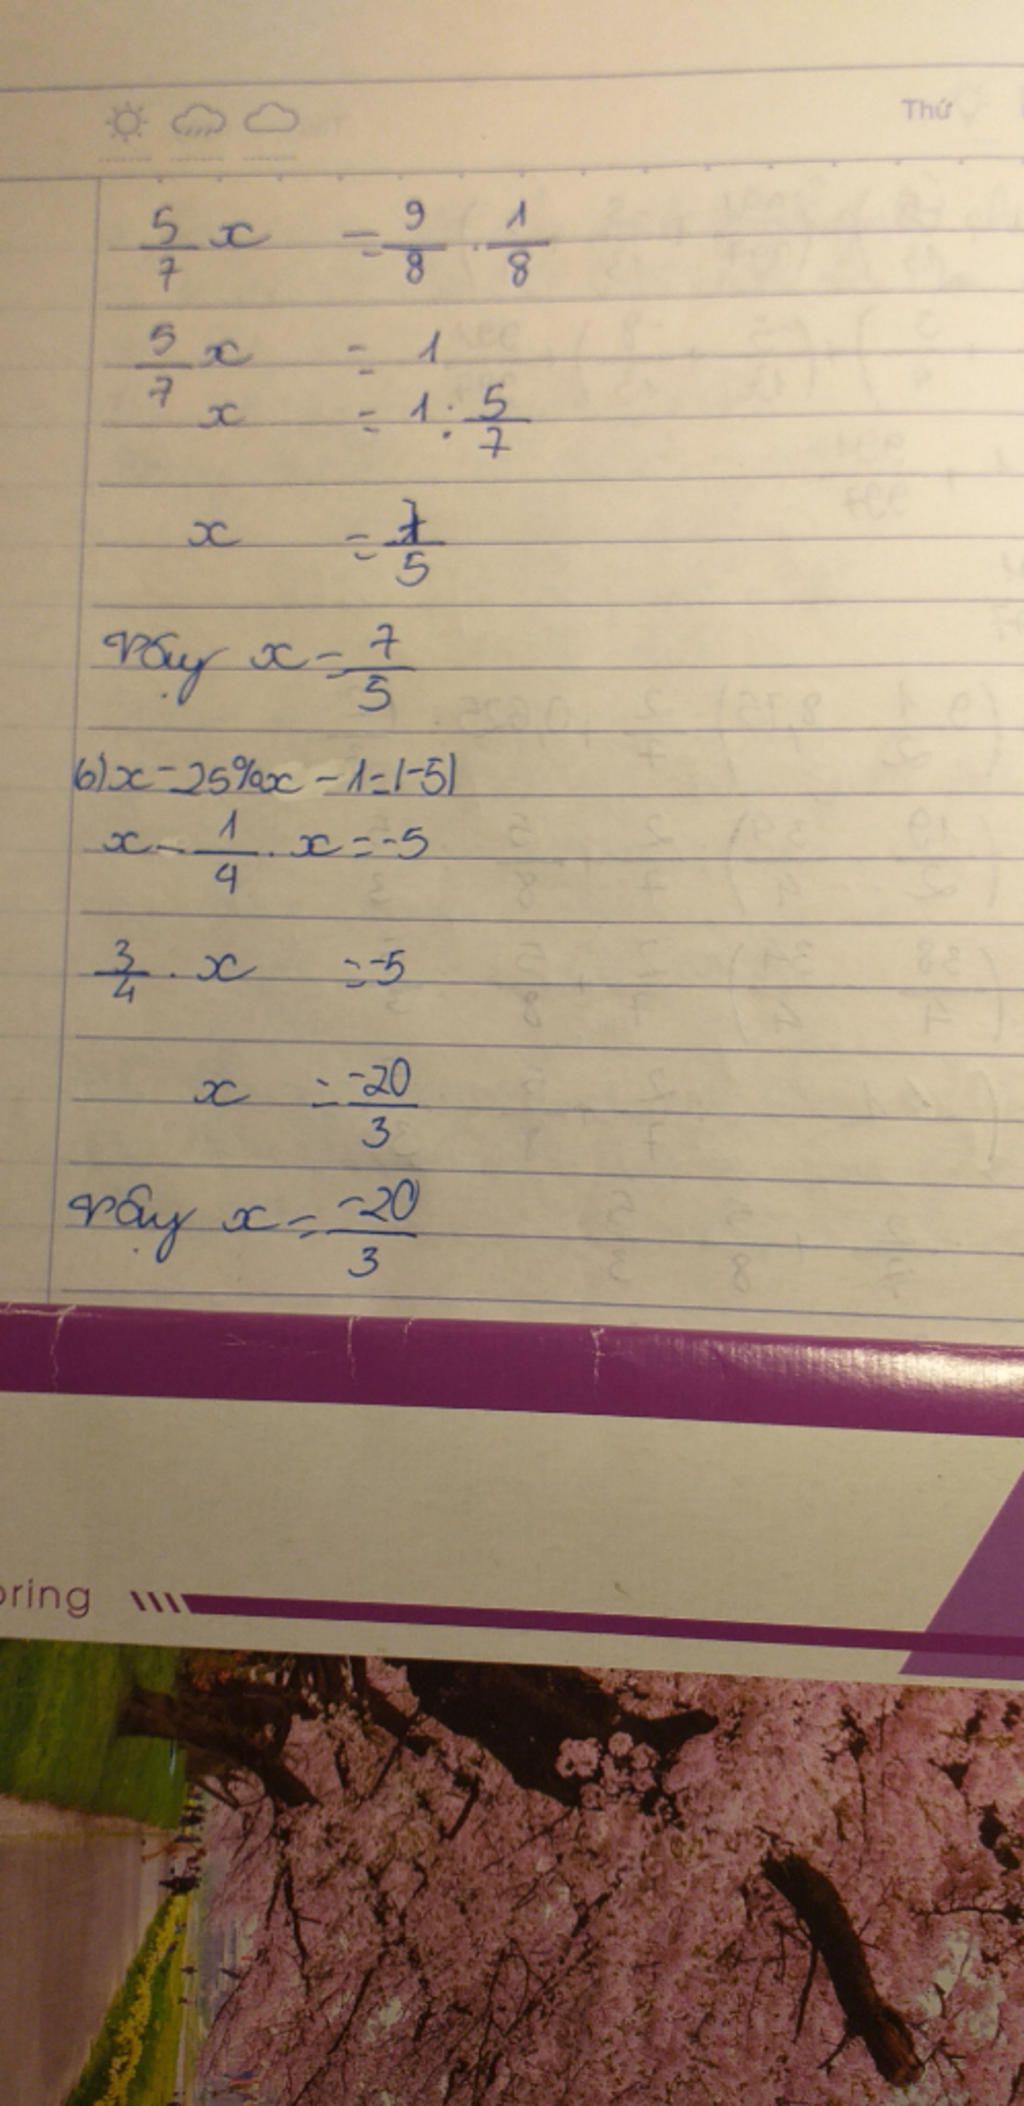 Thứ
5/7 x = 9/8 . 1/8
5/7 x = 1
x = 1 : 5/7
x = 7/5
Vậy x = 7/5
b) x - 25%x - 1 = |-5|
x - 1/4 . x = -5
3/4 . x = -5
x = -20/3
Vậy x = -20/3
oring